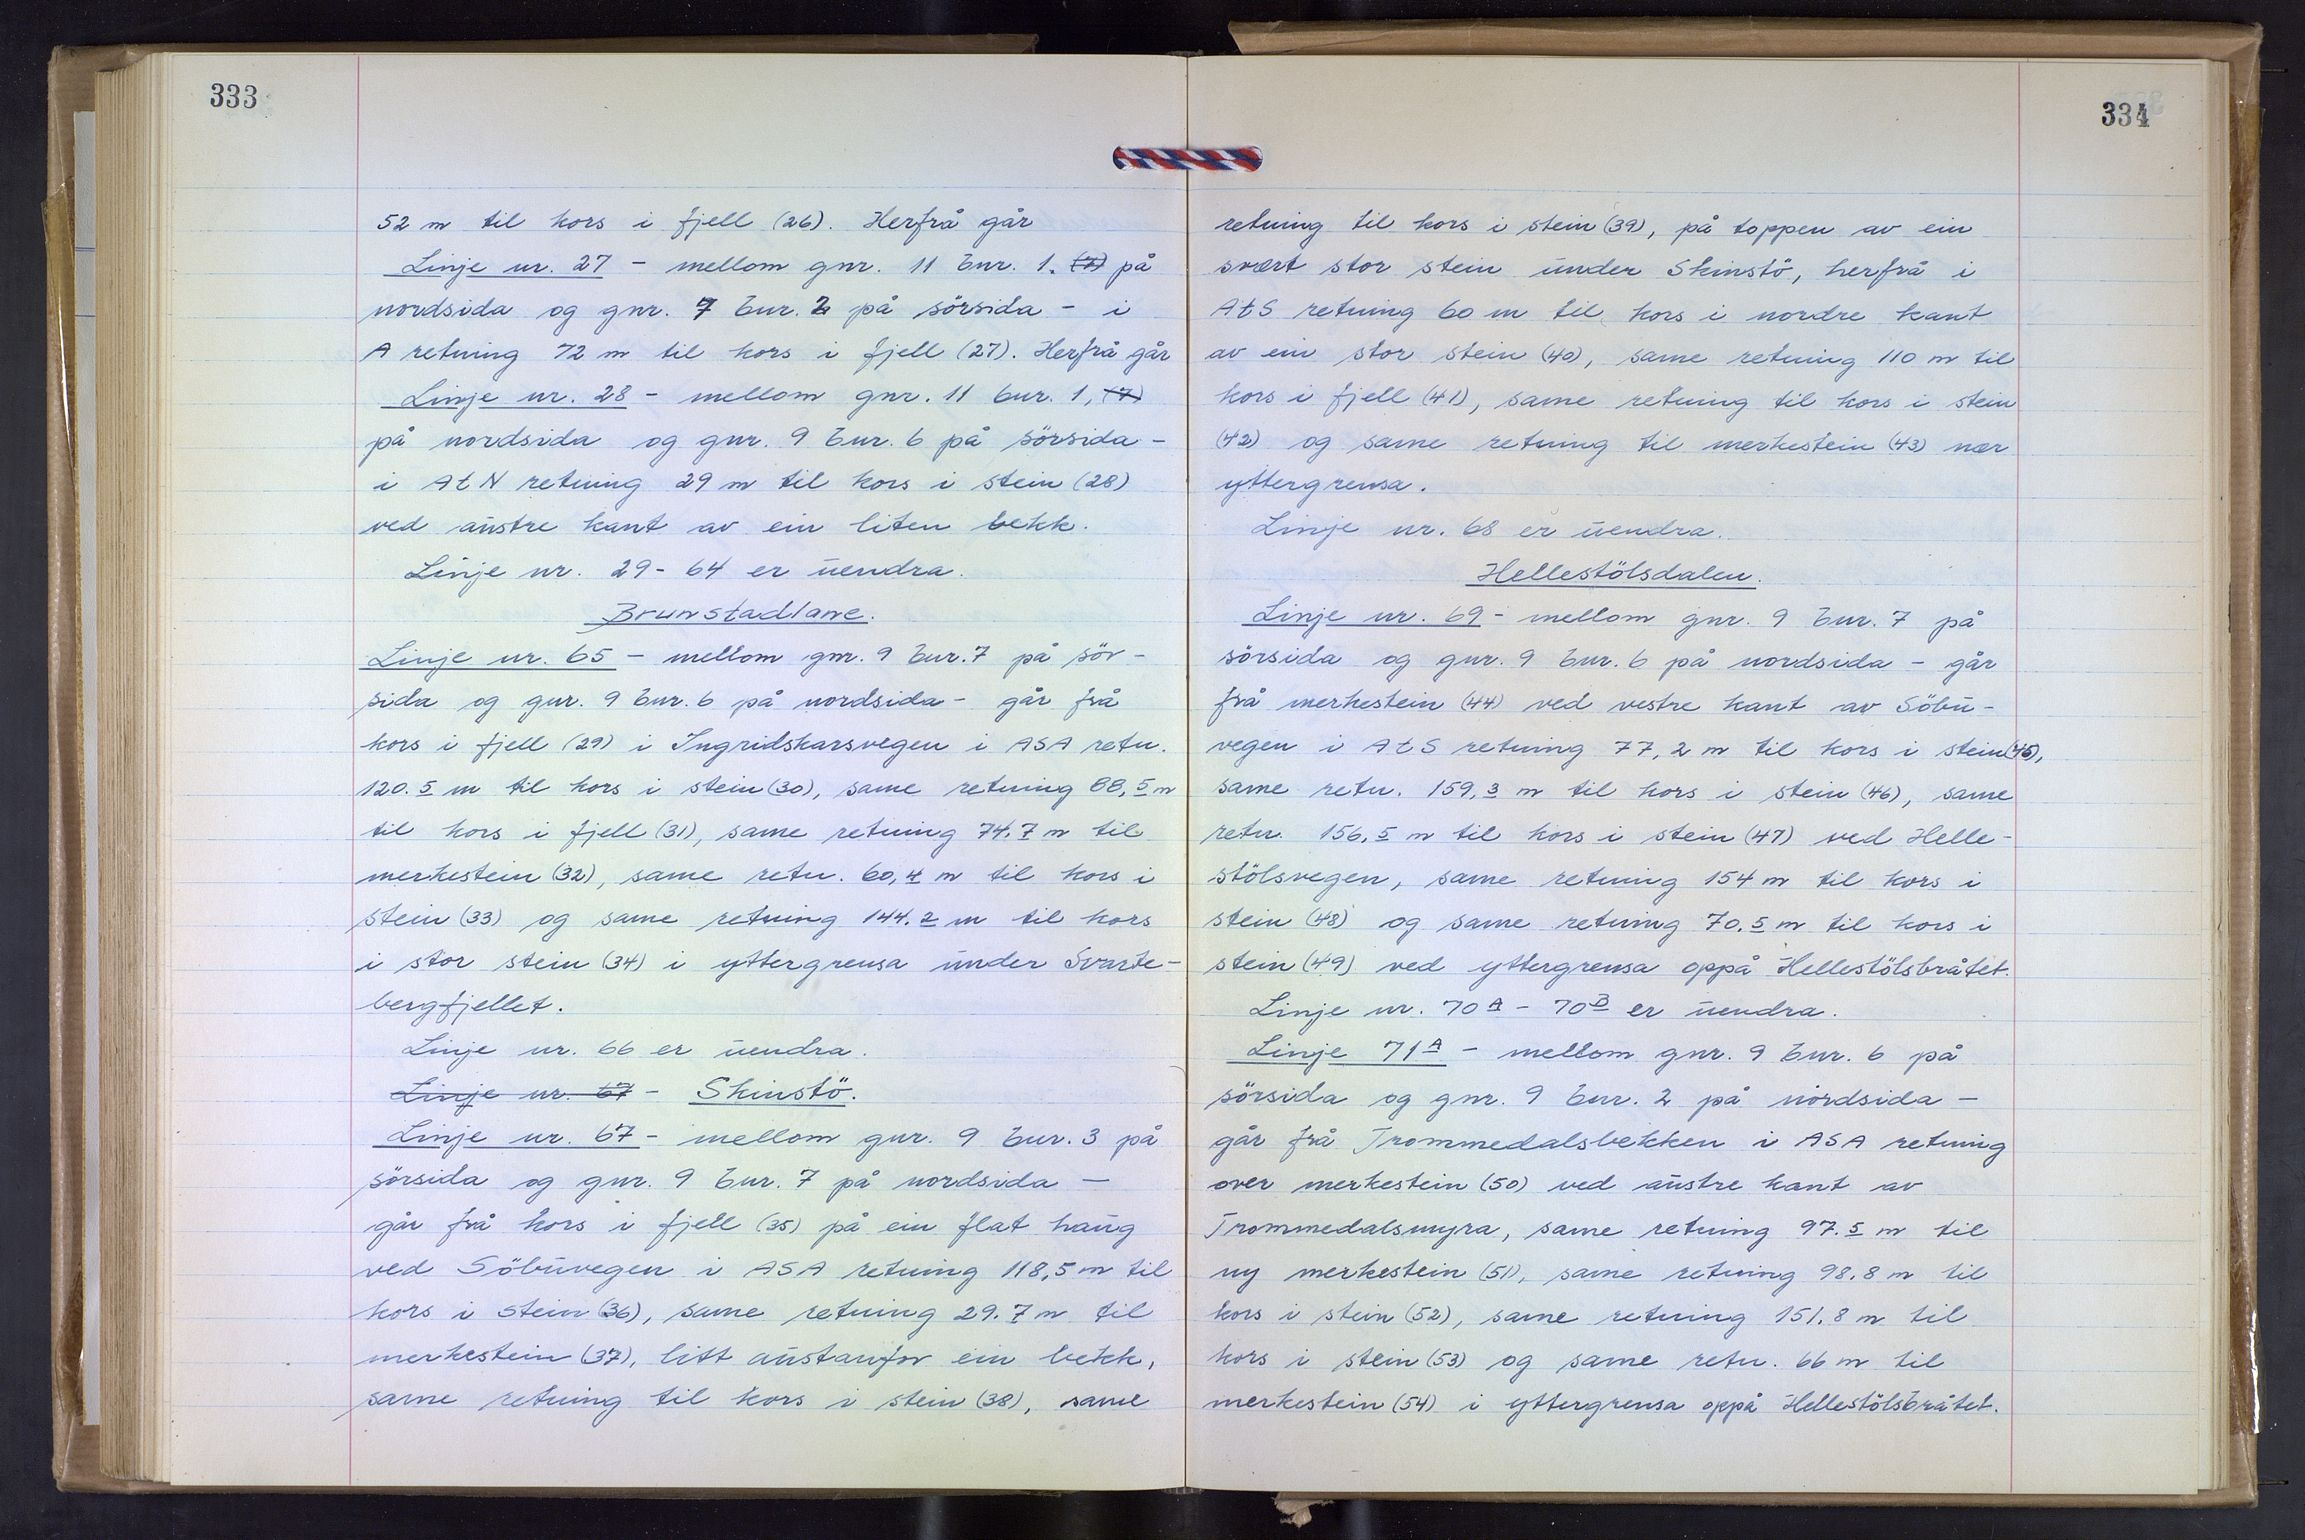 333
52 m til kors i fjell (26). Herfrå går
Linje nr. 27 - mellom gnr. 11 bnr. 1. (7) på
nordsida og gnr. 7 bnr. 2 på sörsida - i
A retning 72 m til kors i fjell (27). Herfrå går
Linje nr. 28 - mellom gnr. 11 bnr. 1, (7)
på nordsida og gnr. 9 bnr. 6 på sörsida -
i AtN retning 29 m til kors i stein (28)
ved austre kant av ein liten bekk.
Linje nr. 29-64 er uendra.
Brunstadlane.
Linje nr. 65 - mellom gnr. 9 bnr. 7 på sör-
sida og gnr. 9 bnr. 6 på nordsida - går frå
kors i fjell (29) i Ingridskarsvegen i ASA retn.
120.5 m til kors i stein (30), same retning 88,5 m
til kors i fjell (31), same retning 74.7 m til
merkestein (32), same retn. 60,4 m til kors i
stein (33) og same retning 144.2 m til kors
i stor stein (34) i yttergrensa under Svarte-
bergfjellet.
Linje nr. 66 er uendra.
Linje nr. 67 - Skinstö.
Linje nr. 67 - mellom gnr. 9 bnr. 3 på
sörsida og gnr. 9 bnr. 7 på nordsida -
går frå kors i fjell (35) på ein flat haug
ved Söbuvegen i ASA retning 118,5 m til
kors i stein (36), same retning 29.7 m til
merkestein (37), litt austanfor ein bekk,
same retning til kors i stein (38), same
334
retning til kors i stein (39), på toppen av ein
svært stor stein under Skinstö, herfrå i
AtS retning 60 m til kors i nordre kant
av ein stor stein (40), same retning 110 m til
kors i fjell (41), same retning til kors i stein
(42) og same retning til merkestein (43) nær
yttergrensa.
Linje nr. 68 er uendra.
Hellestölsdalen.
Linje nr. 69 - mellom gnr. 9 bnr. 7 på
sörsida og gnr. 9 bnr. 6 på nordsida - går
frå merkestein (44) ved vestre kant av Söbu-
vegen i AtS retning 77,2 m til kors i stein (45),
same retn. 159,3 m til kors i stein (46), same
retn. 156,5 m til kors i stein (47) ved Helle-
stölsvegen, same retning 154 m til kors i
stein (48) og same retning 70.5 m til kors i
stein (49) ved yttergrensa oppå Hellestölsbråtet.
Linje nr. 70 A - 70 B er uendra.
Linje 71 A - mellom gnr. 9 bnr. 6 på
sörsida og gnr. 9 bnr. 2 på nordsida -
går frå Trommedalsbekken i ASA retning
over merkestein (50) ved austre kant av
Trommedalsmyra, same retning 97.5 m til
ny merkestein (51), same retning 98.8 m til
kors i stein (52), same retning 151.8 m til
kors i stein (53) og same retn. 66 m til
merkestein (54) i yttergrensa oppå Hellestölsbråtet.